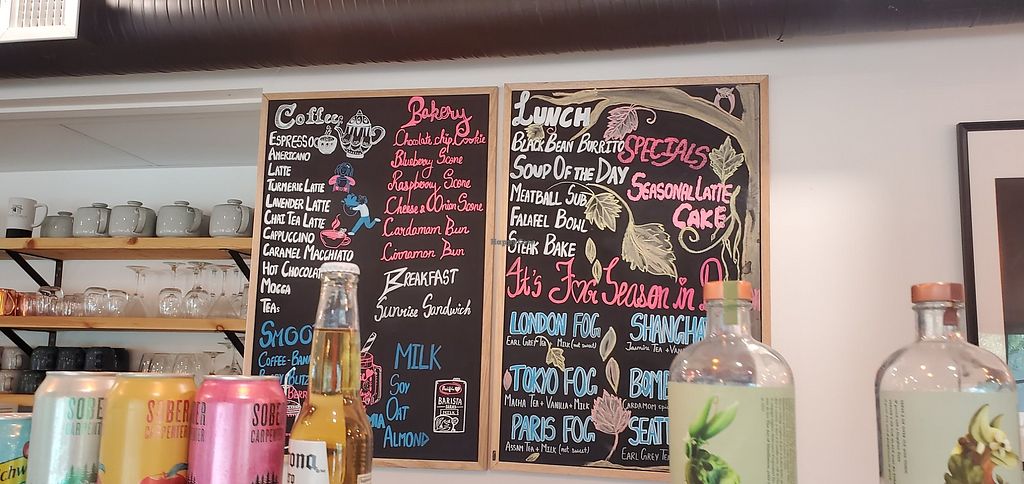 Coffee
ESPRESSO
AMERICANO
LATTE
TURMERIC LATTE
LAVENDER LATTE
CHAI TEA LATTE
CAPPUCCINO
CARAMEL MACCHIATO
HOT CHOCOLAT
MOCCA
TEAS
SMOO
COFFEE-BANA
BLITZ
BERR
Bakery
Chocolate chip Cookie
Blueberry Scone
Raspberry Scone
Cheese & Onion Scone
Cardamam Bun
Cinnamon Bun
BREAKFAST
Sunrise Sandwich
MILK
SOY
OAT
ALMOND
BARISTA
LUNCH
BLACK BEAN BURRITO
SOUP OF THE DAY
MEATBALL SUB
FALAFEL BOWL
STEAK BAKE
SPECIALS
SEASONAL LATTE
CAKE
It's Fog Season in
LONDON FOG
EARL GREY TEA + MILK (not sweet)
TOKYO FOG
MACHA TEA + VANILLA + MILK
PARIS FOG
ASSAM TEA + MILK (not sweet)
SHANGHA
Jasmine TEA + VAN
BOMB
CARDAMOM
SEATT
EARL GREY TEA
SOBER
CARPENTER
SOBER
CARPENTER
SOBER
CARPENTER
Schw
ona